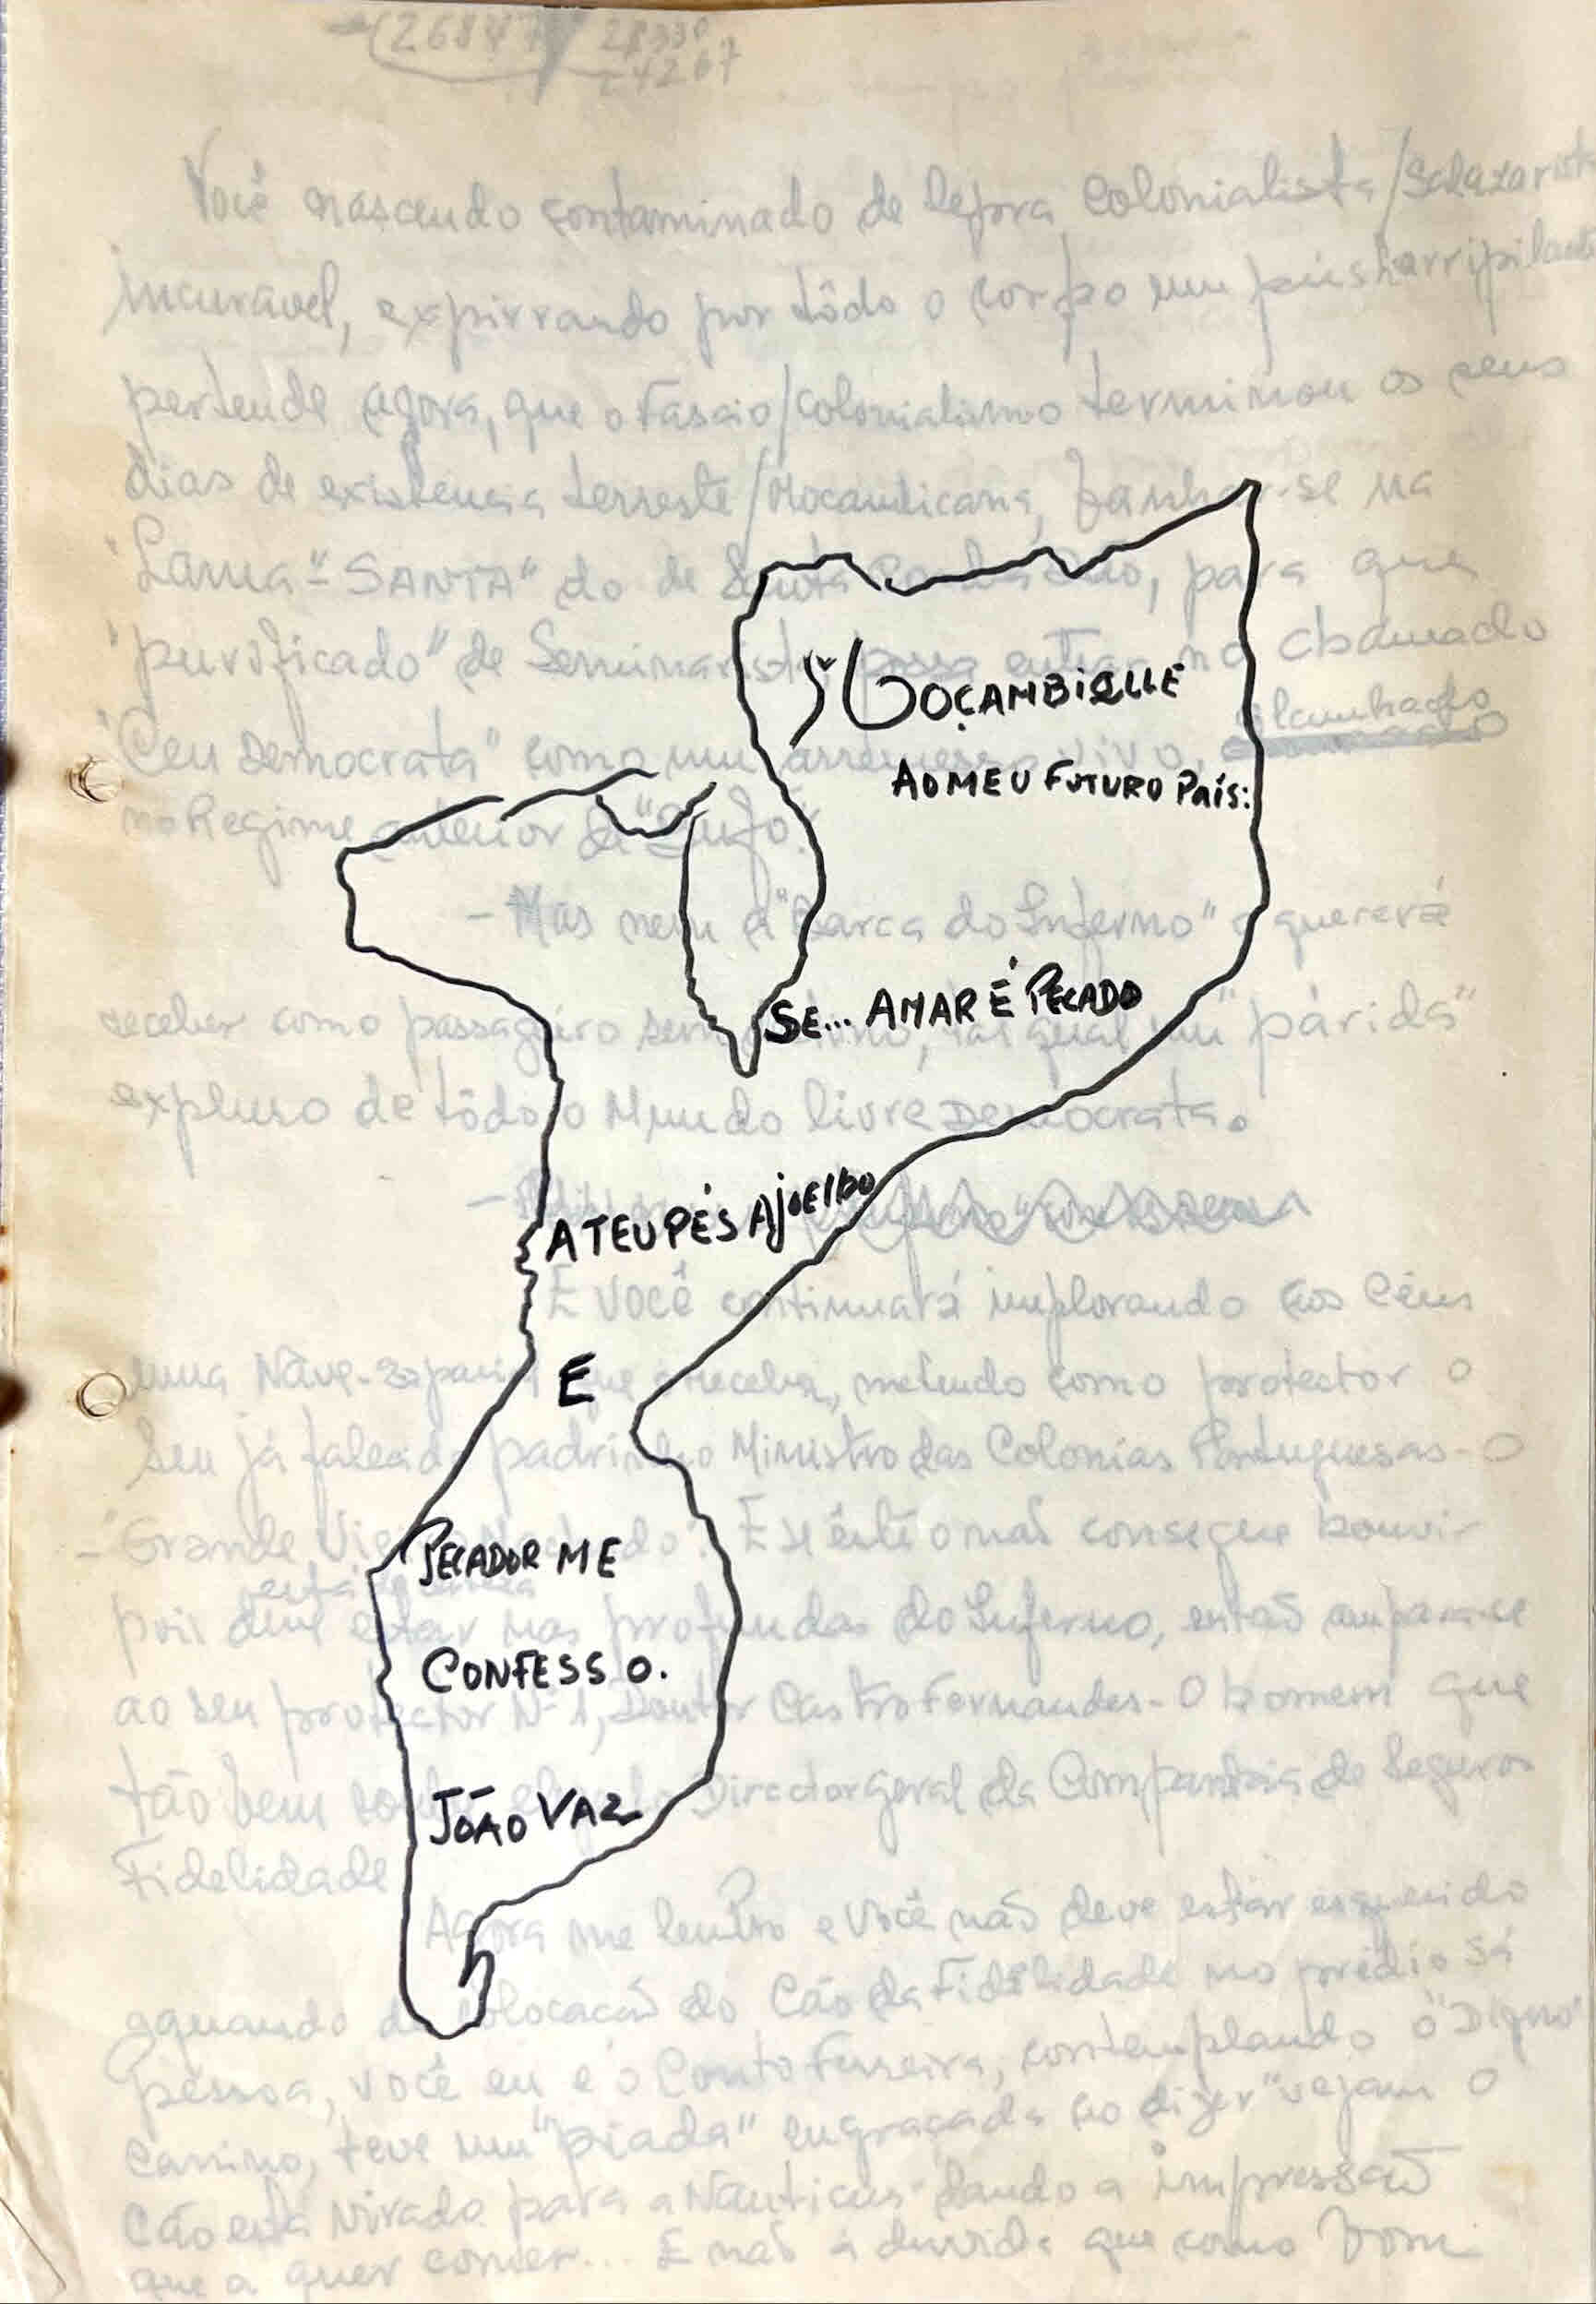 26847 28330
4267
Você nascendo contaminado de lepra Colonialista/Salazarista
incurável, expirrando por tôdo o corpo um pús harripilante
pertende agora, que o Fascio/colonialismo terminou os seus
dias de existencia terreste/Mocambicana, banhar-se na
"Lama"-SANTA" do de Santa, para que
"purificado" de Seminarista possa entrar no chamado
"Ceu Democrata" como um arremesso vivo,
no Regime anterior de "Bufo"
MOÇAMBIQUE
AO MEU FUTURO País:
-Mas nem a "Barca do Inferno" o quererá
receber como passageiro sem, tal qual um "párida"
SE... AMAR É PECADO
expluso de tôdo o Mundo livre Democrata.
A TEU PÉS AJOELHO
E Você continuará implorando aos Céus
uma Nave-Espacial que o receba, metendo como protector o
E
seu já falecido padrinho Ministro das Colonias Portuguesas-O
-"Grande. E se êste o não consegue houvir
PECADOR ME
pois deve estar nas profundas do Inferno, então ampara-se
CONFESSO.
ao seu protector Nº 1, Doutor Castro Fernandes-O homem que
tão bem Director geral da Companhia de Seguros
JOÃO VAZ
Fidelidade
Agora me lembro e Você não deve estar esquecido
quando da colocação do Cão da Fidelidade no prédio Sá
pessoa, você eu e o Couto Ferreira, contemplando o "Digno"
Canino, teve um "piada" engraçada ao dizer "vejam o
Cão está virado para a Nauticus dando a impressão
que a quer comer... E não á duvida que como bom